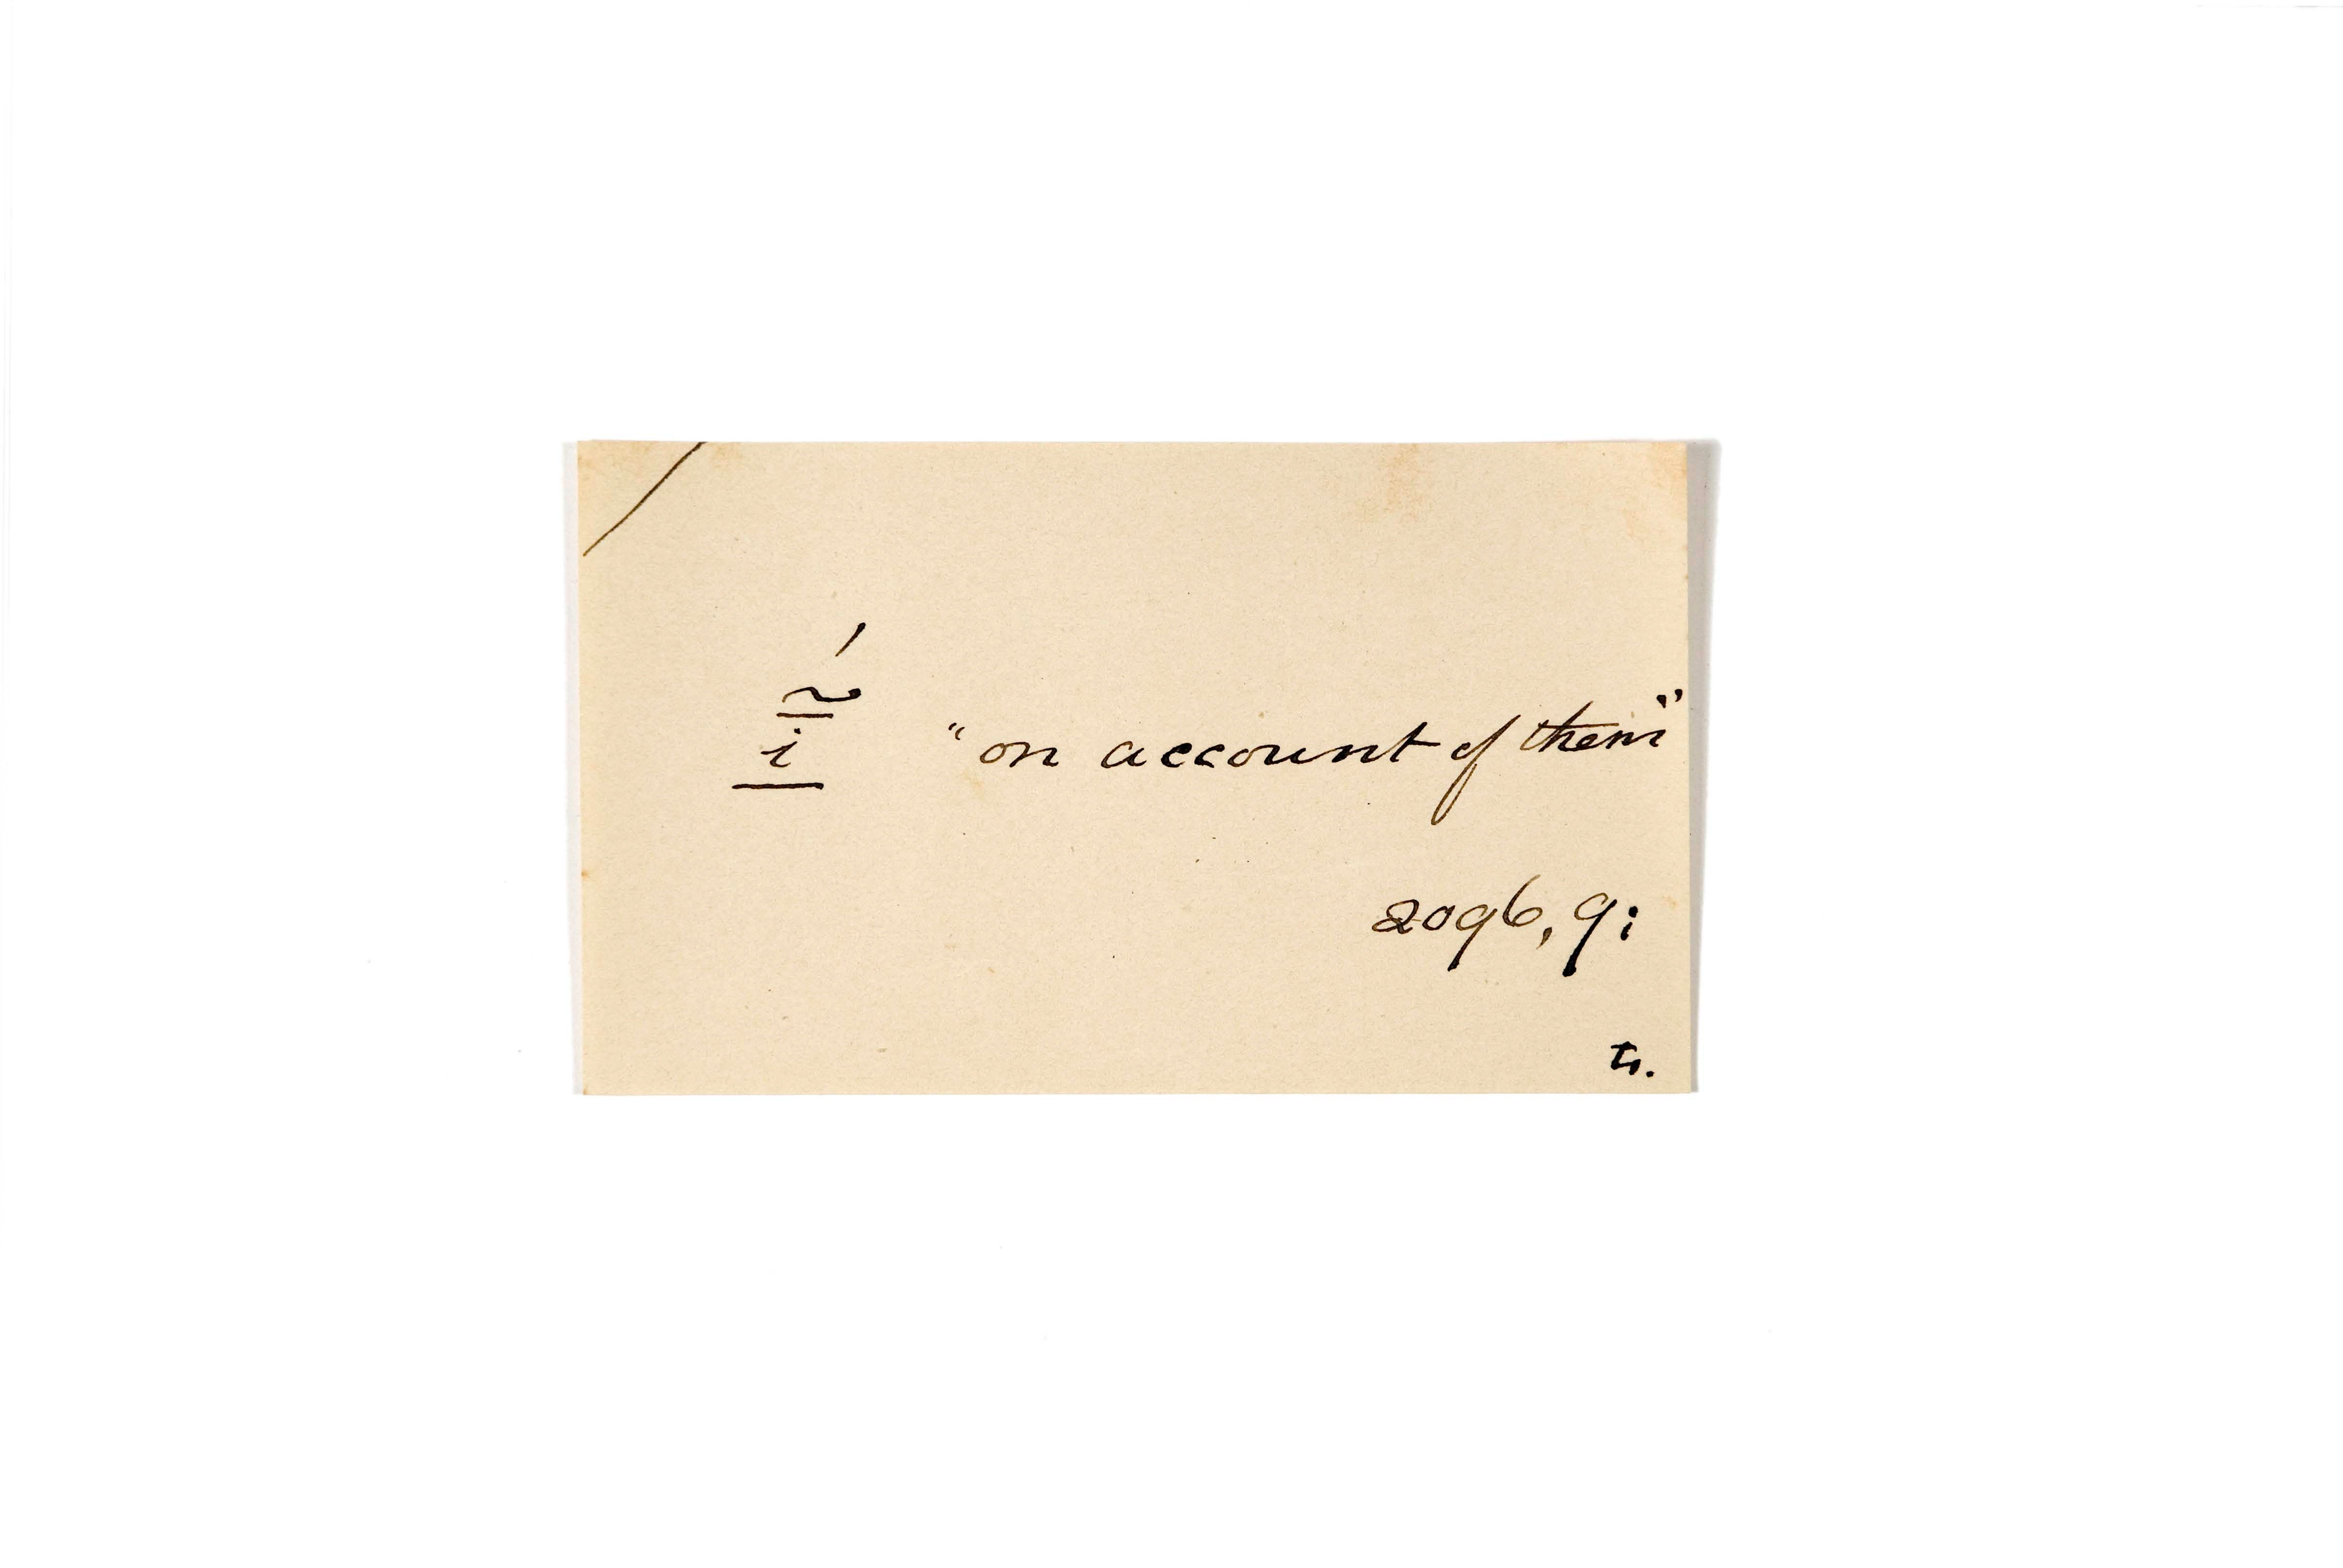 ī̃́ "on account of them"
2096, 9;